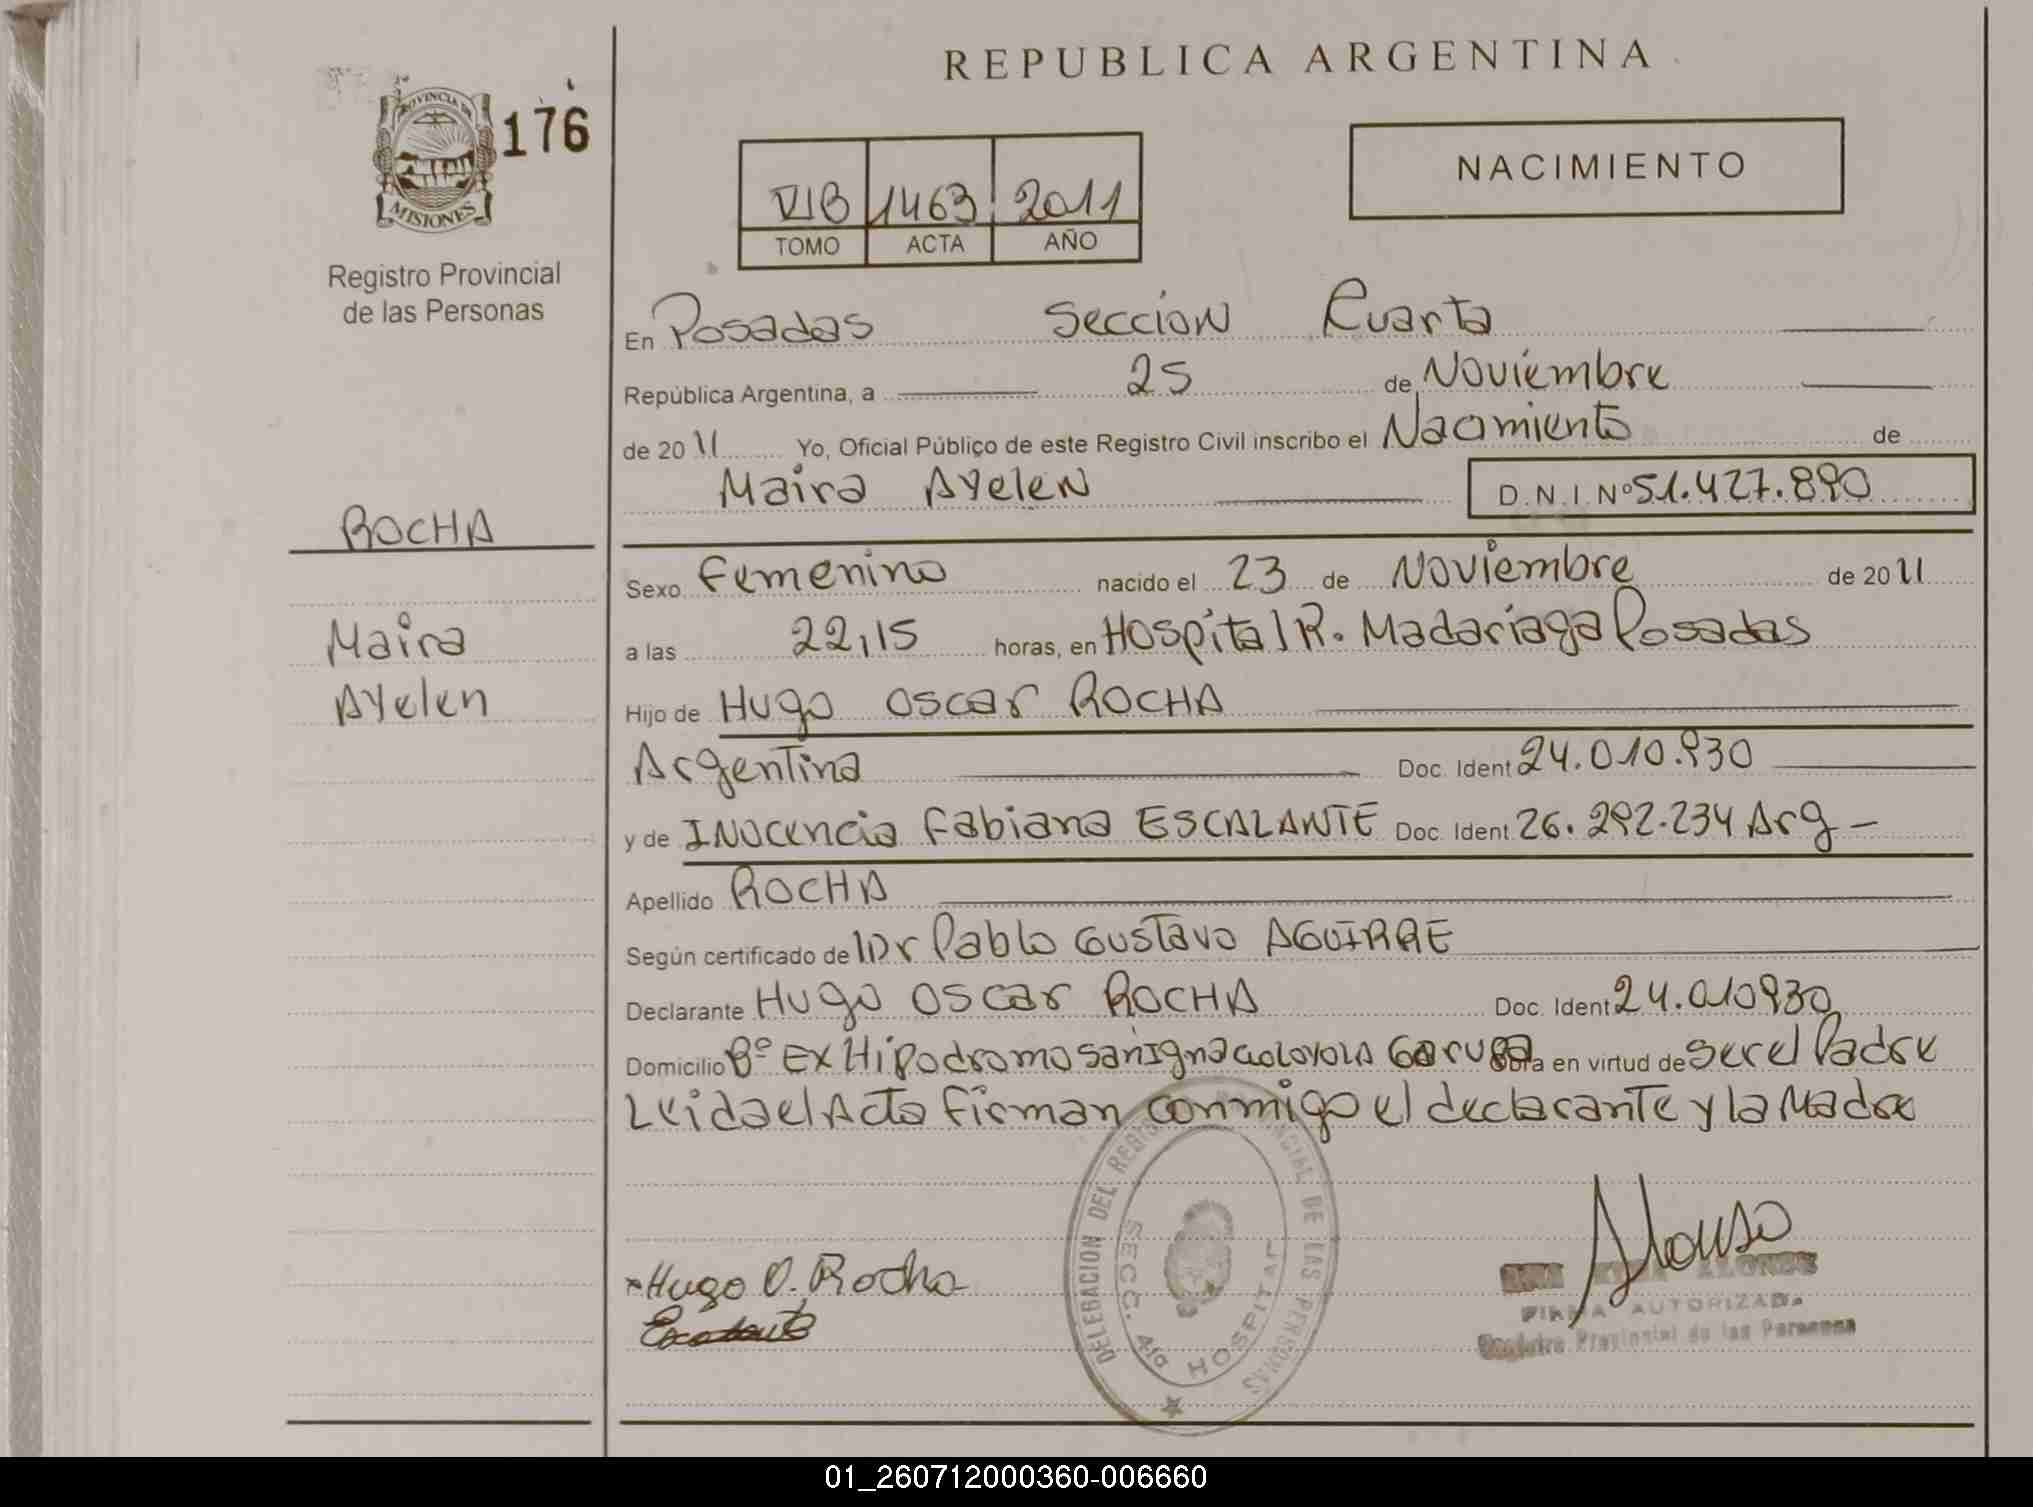 REPUBLICA ARGENTINA
PROVINCIA DE
MISIONES
176
Registro Provincial
de las Personas
NACIMIENTO
VIB 1463 2011
TOMO ACTA AÑO
En Posadas Seccion Cuarta
República Argentina, a 25 de Noviembre
de 2011 Yo, Oficial Público de este Registro Civil inscribo el Nacimiento de
Maira Ayelen D.N.I. Nº 51.427.890
ROCHA
Maira
Ayelen
Sexo Femenino nacido el 23 de Noviembre de 2011
a las 22,15 horas, en Hospital R. Madariaga Posadas
Hijo de Hugo Oscar ROCHA
Argentina Doc. Ident 24.010.930
y de Inocencia Fabiana ESCALANTE Doc. Ident 26.292.234 Arg -
Apellido ROCHA
Según certificado de Dr Pablo Gustavo AGUIRRE
Declarante Hugo Oscar ROCHA Doc. Ident 24.010930
Domicilio Bº Ex Hipodromo San Ignacio Loyola Garupa Obra en virtud de ser el Padre
Leida el Acta firman conmigo el declarante y la Madre
DELEGACION DEL REGISTRO PROVINCIAL DE LAS PERSONAS
SECC. 4ta HOSPITAL
Hugo O. Rocha
Alonso
ALONSO
FIRMA AUTORIZADA
Registro Provincial de las Personas
01_260712000360-006660